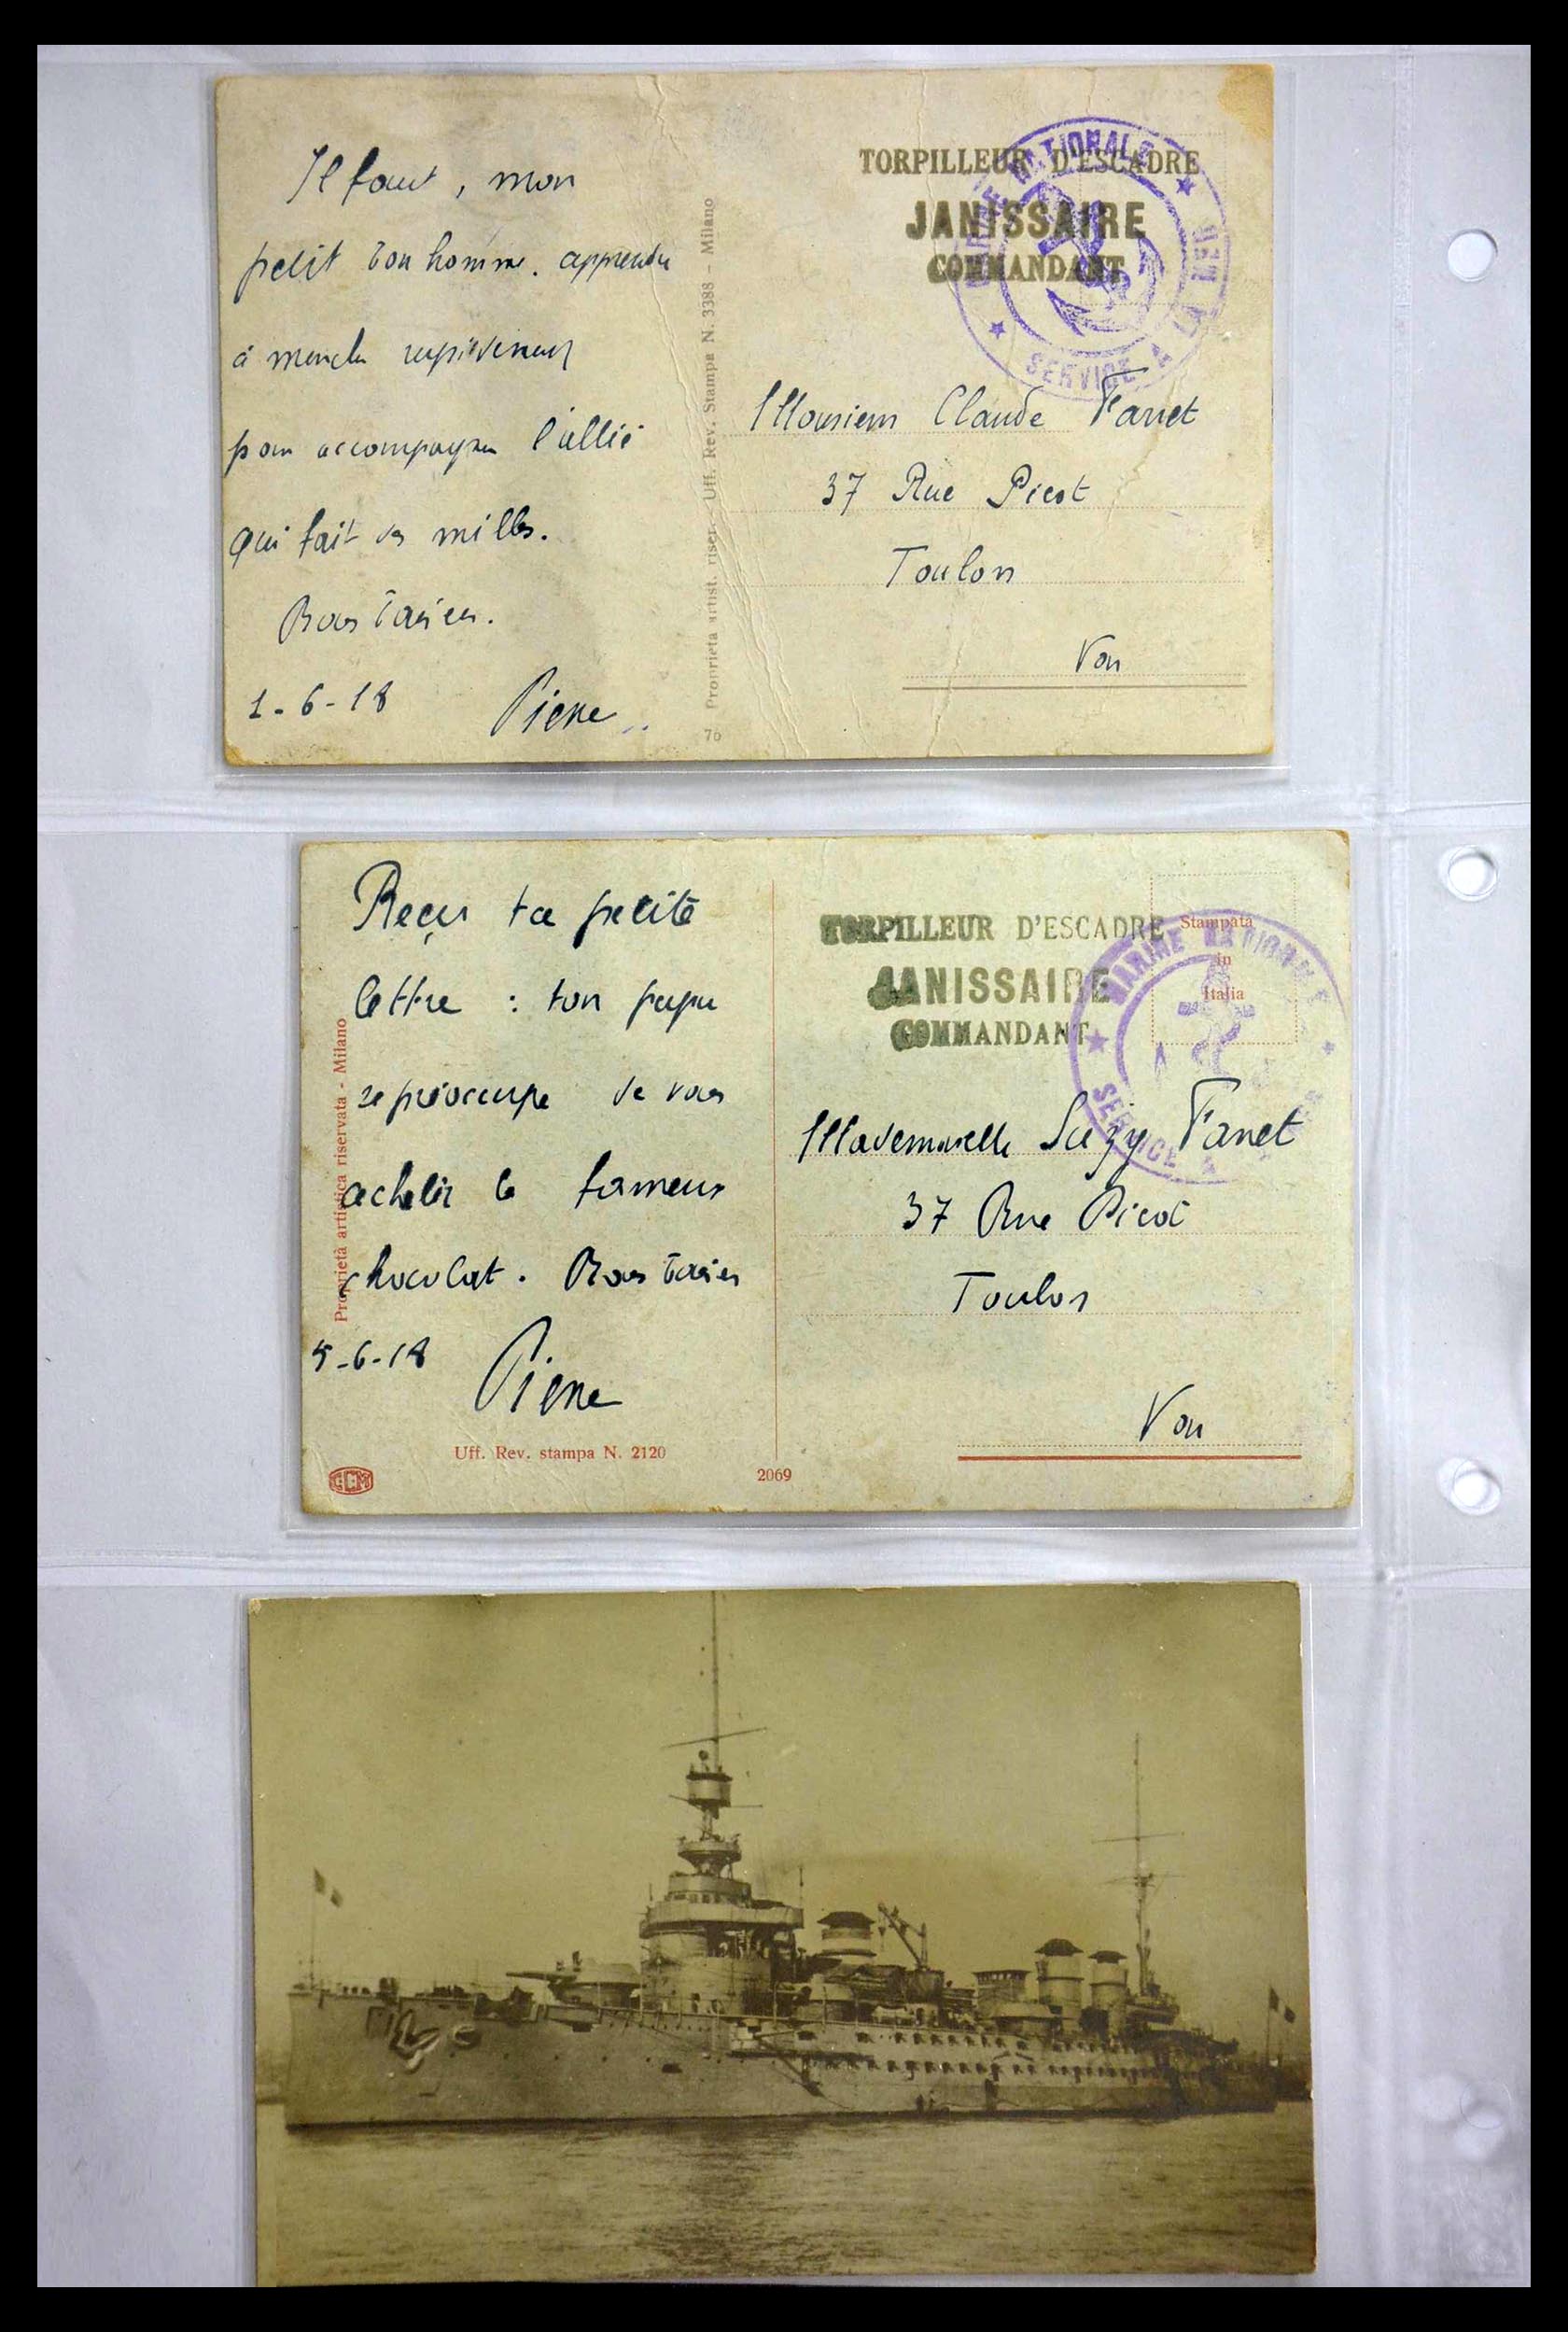 Il faut, mon
petit bonhomme. apprendre
à marcher rapidement
pour accompagner l'allié
qui fait des milles.
Bons baisers.
1-6-18 Pierre
76 Proprieta artist. riser. - Uff. Rev. Stampa N. 3388 - Milano
TORPILLEUR D'ESCADRE
JANISSAIRE
COMMANDANT
MARINE NATIONALE
SERVICE A LA MER
Monsieur Claude Farret
37 Rue Picot
Toulon
Var
Reçu ta petite
lettre : ton papa
se préoccupe de vous
acheter le fameux
chocolat. Bons baisers
5-6-18 Pierre
Proprietà artistica riservata - Milano
Uff. Rev. stampa N. 2120
GCM
2069
TORPILLEUR D'ESCADRE
JANISSAIRE
COMMANDANT
Stampata
in
Italia
MARINE NATIONALE
SERVICE A
Mademoiselle Suzy Farret
37 Rue Picot
Toulon
Var